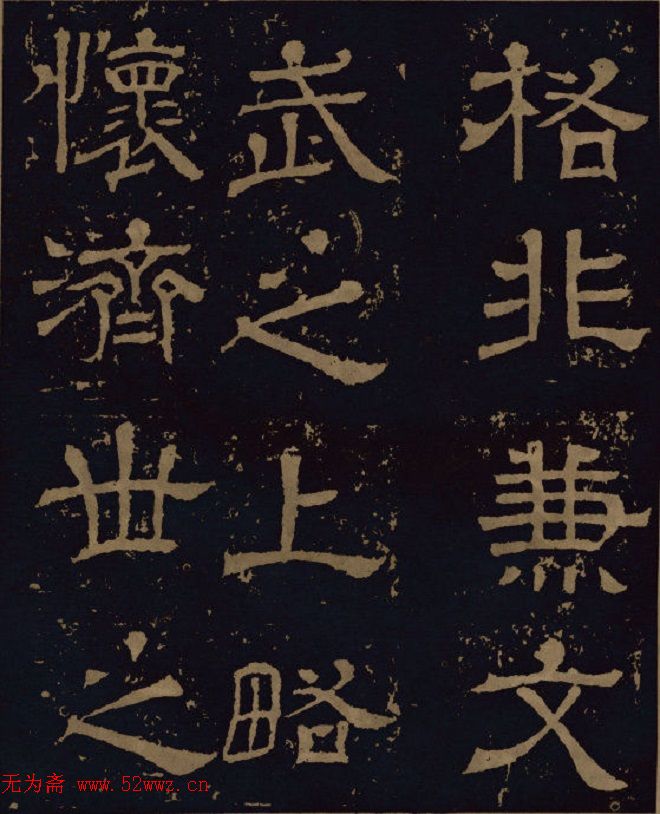 格非兼文
武之上略
懷濟世之
无为斋 www.52wwz.cn